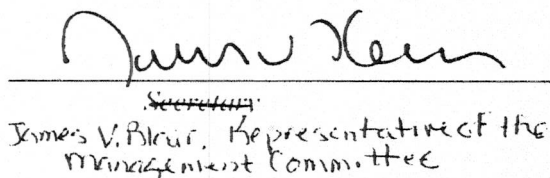 Secretary
James V. Blair, Representative of the
Management Committee